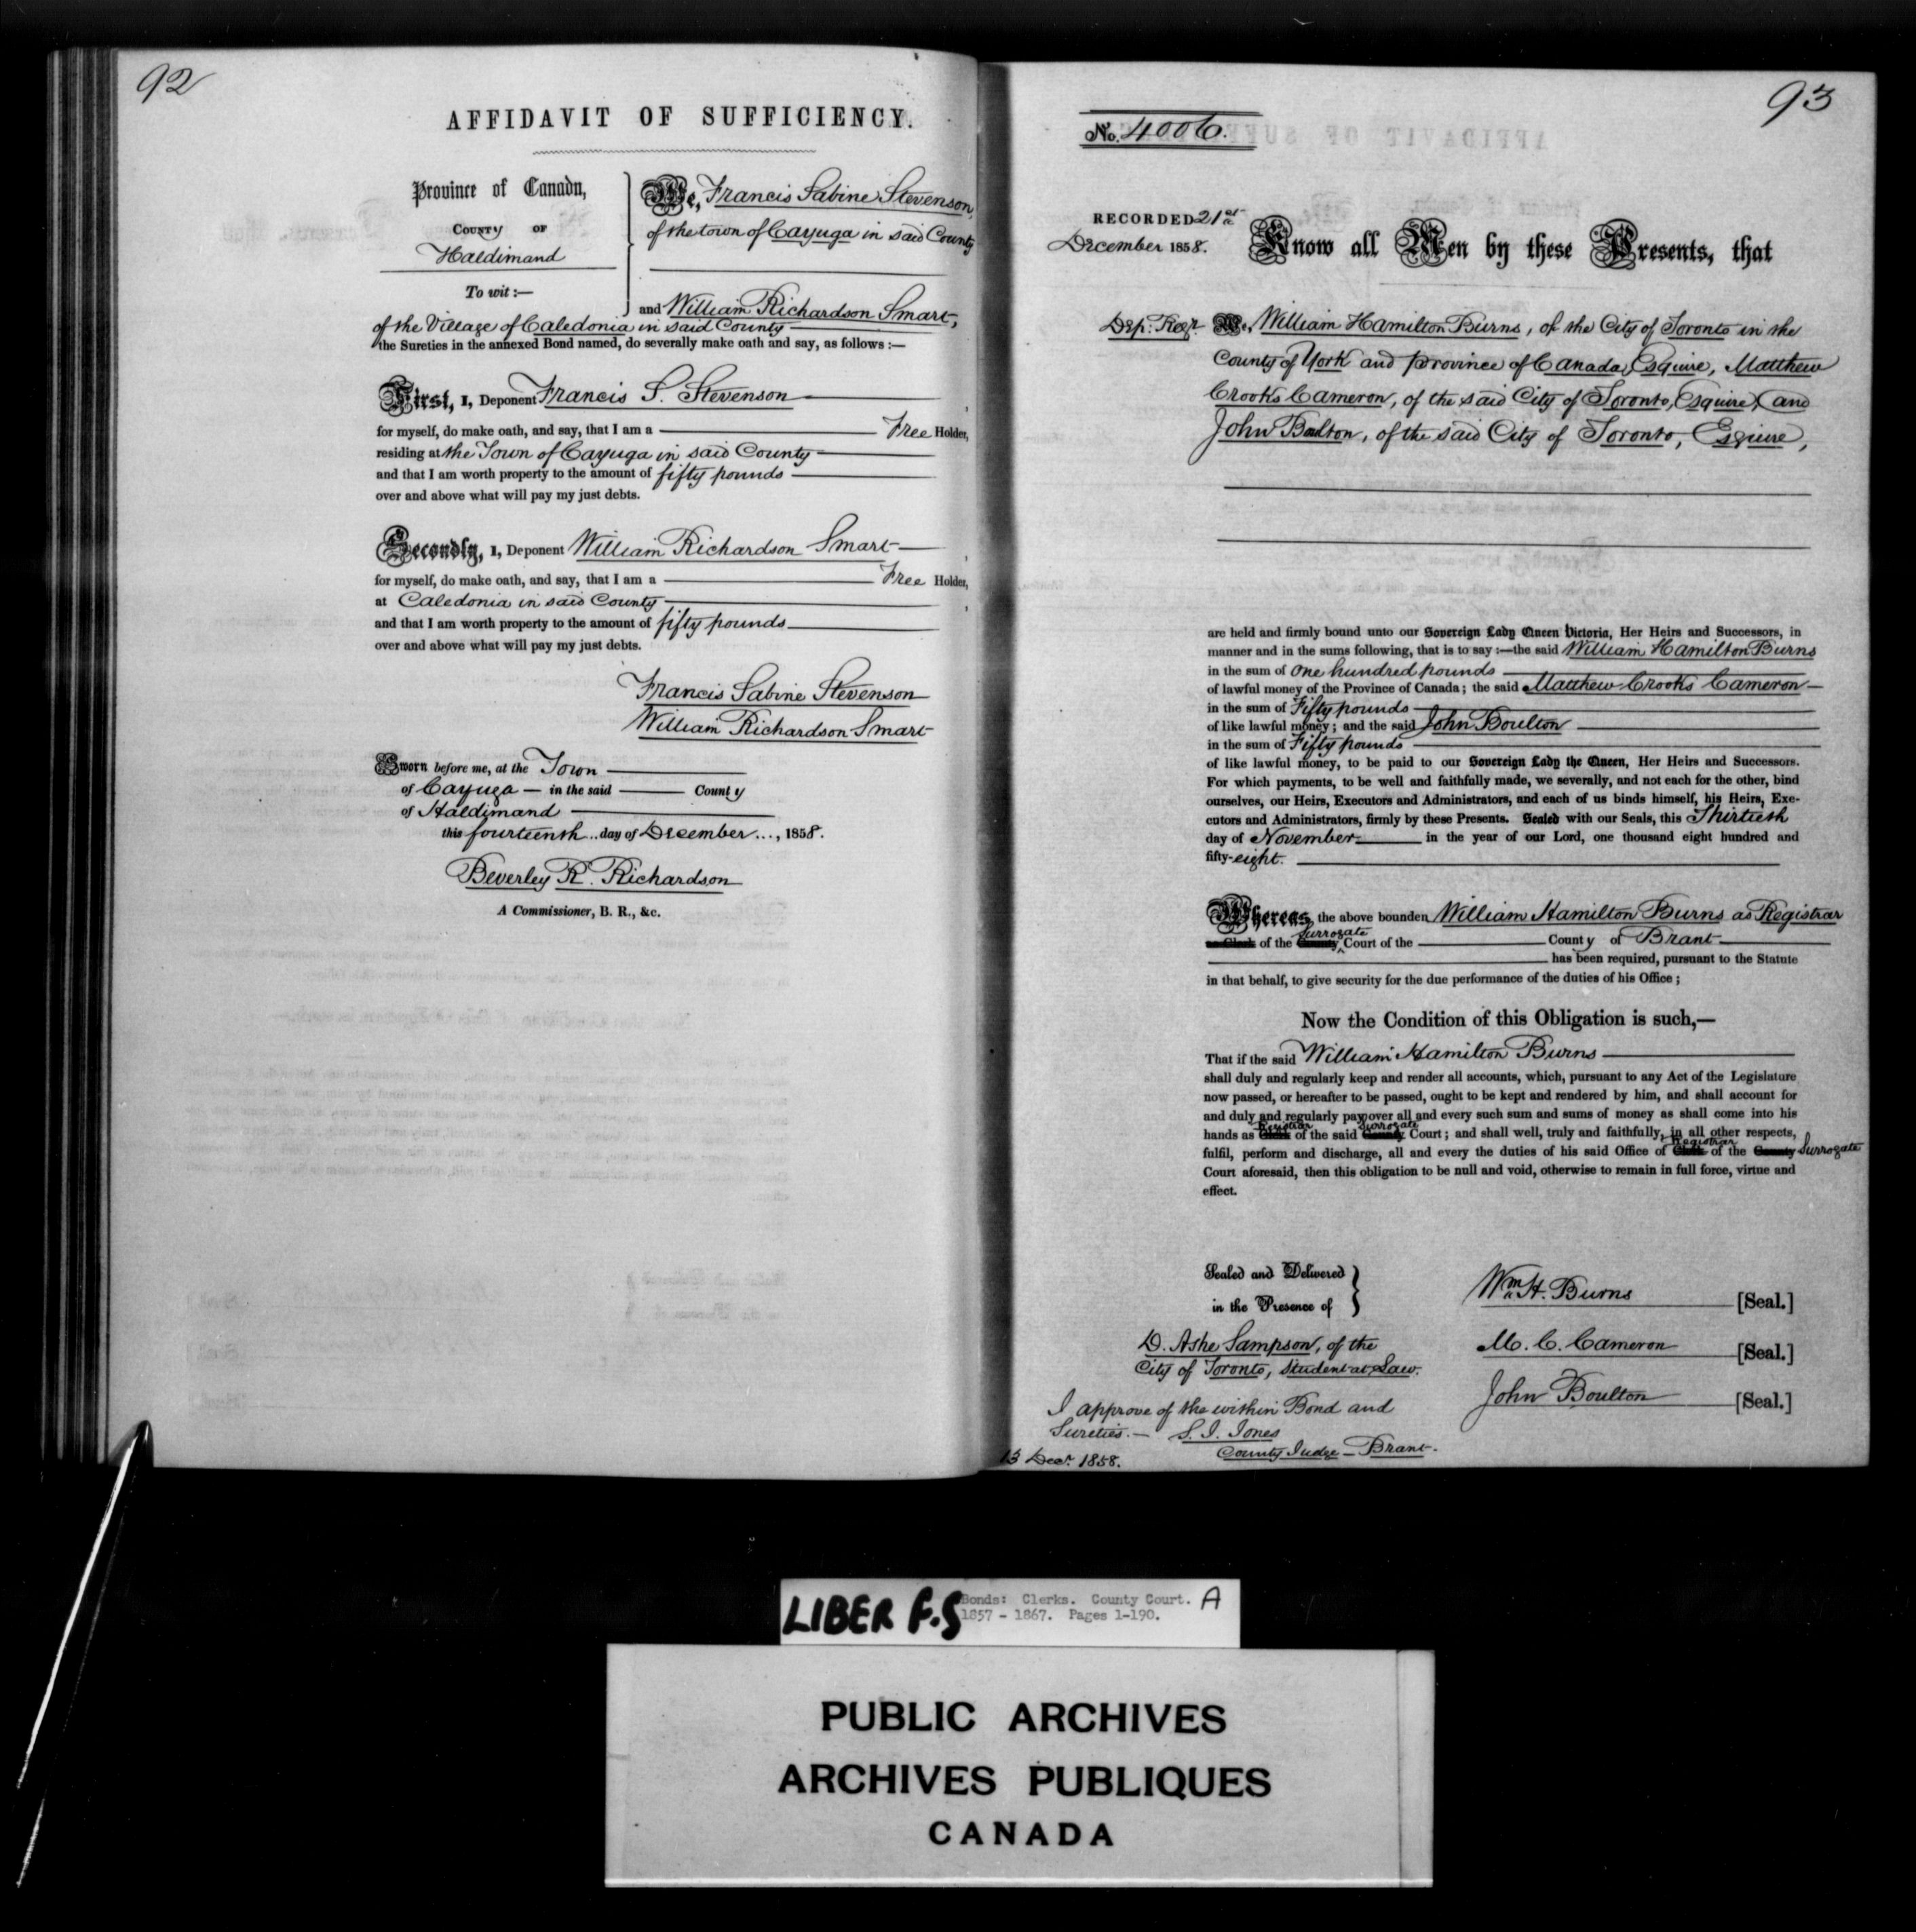 92
AFFIDAVIT OF SUFFICIENCY.
Province of Canada,
COUNTY OF
Haldimand
To wit:—
We, Francis Sabine Stevenson,
of the town of Cayuga in said County
and William Richardson Smart,
of the Village of Caledonia in said County
the Sureties in the annexed Bond named, do severally make oath and say, as follows:—
First, I, Deponent Francis S. Stevenson
for myself, do make oath, and say, that I am a Free Holder,
residing at the Town of Cayuga in said County
and that I am worth property to the amount of fifty pounds
over and above what will pay my just debts.
Secondly, I, Deponent William Richardson Smart
for myself, do make oath, and say, that I am a Free Holder,
at Caledonia in said County
and that I am worth property to the amount of fifty pounds
over and above what will pay my just debts.
Francis Sabine Stevenson
William Richardson Smart
Sworn before me, at the Town
of Cayuga — in the said County
of Haldimand
this fourteenth .. day of December ..., 1858.
Beverley R. Richardson
A Commissioner, B. R., &c.
93
No. 4006.
RECORDED 21st
December 1858.
Know all Men by these Presents, that
Dep: Regr.
We, William Hamilton Burns, of the City of Toronto in the
County of York and province of Canada, Esquire, Matthew
Crooks Cameron, of the said City of Toronto, Esquire, and
John Boulton, of the said City of Toronto, Esquire,
are held and firmly bound unto our Sovereign Lady Queen Victoria, Her Heirs and Successors, in
manner and in the sums following, that is to say:—the said William Hamilton Burns
in the sum of One hundred pounds
of lawful money of the Province of Canada; the said Matthew Crooks Cameron
in the sum of Fifty pounds
of like lawful money; and the said John Boulton
in the sum of Fifty pounds
of like lawful money, to be paid to our Sovereign Lady the Queen, Her Heirs and Successors.
For which payments, to be well and faithfully made, we severally, and not each for the other, bind
ourselves, our Heirs, Executors and Administrators, and each of us binds himself, his Heirs, Exe-
cutors and Administrators, firmly by these Presents. Sealed with our Seals, this Thirtieth
day of November in the year of our Lord, one thousand eight hundred and
fifty-eight.
Whereas, the above bounden William Hamilton Burns as Registrar
as Clerk of the County Surrogate Court of the County of Brant
has been required, pursuant to the Statute
in that behalf, to give security for the due performance of the duties of his Office;
Now the Condition of this Obligation is such,—
That if the said William Hamilton Burns
shall duly and regularly keep and render all accounts, which, pursuant to any Act of the Legislature
now passed, or hereafter to be passed, ought to be kept and rendered by him, and shall account for
and duly and regularly pay over all and every such sum and sums of money as shall come into his
hands as Clerk Registrar of the said County Surrogate Court; and shall well, truly and faithfully, in all other respects,
fulfil, perform and discharge, all and every the duties of his said Office of Clerk Registrar of the County Surrogate
Court aforesaid, then this obligation to be null and void, otherwise to remain in full force, virtue and
effect.
Sealed and Delivered
in the Presence of
D. Ashe Sampson, of the
City of Toronto, Student at Law.
Wm. H. Burns [Seal.]
M. C. Cameron [Seal.]
John Boulton [Seal.]
I approve of the within Bond and
Sureties. — S. J. Jones
County Judge — Brant.
13 Decr. 1858.
LIBER F.S
Bonds: Clerks. County Court. A
1857 - 1867. Pages 1-190.
PUBLIC ARCHIVES
ARCHIVES PUBLIQUES
CANADA